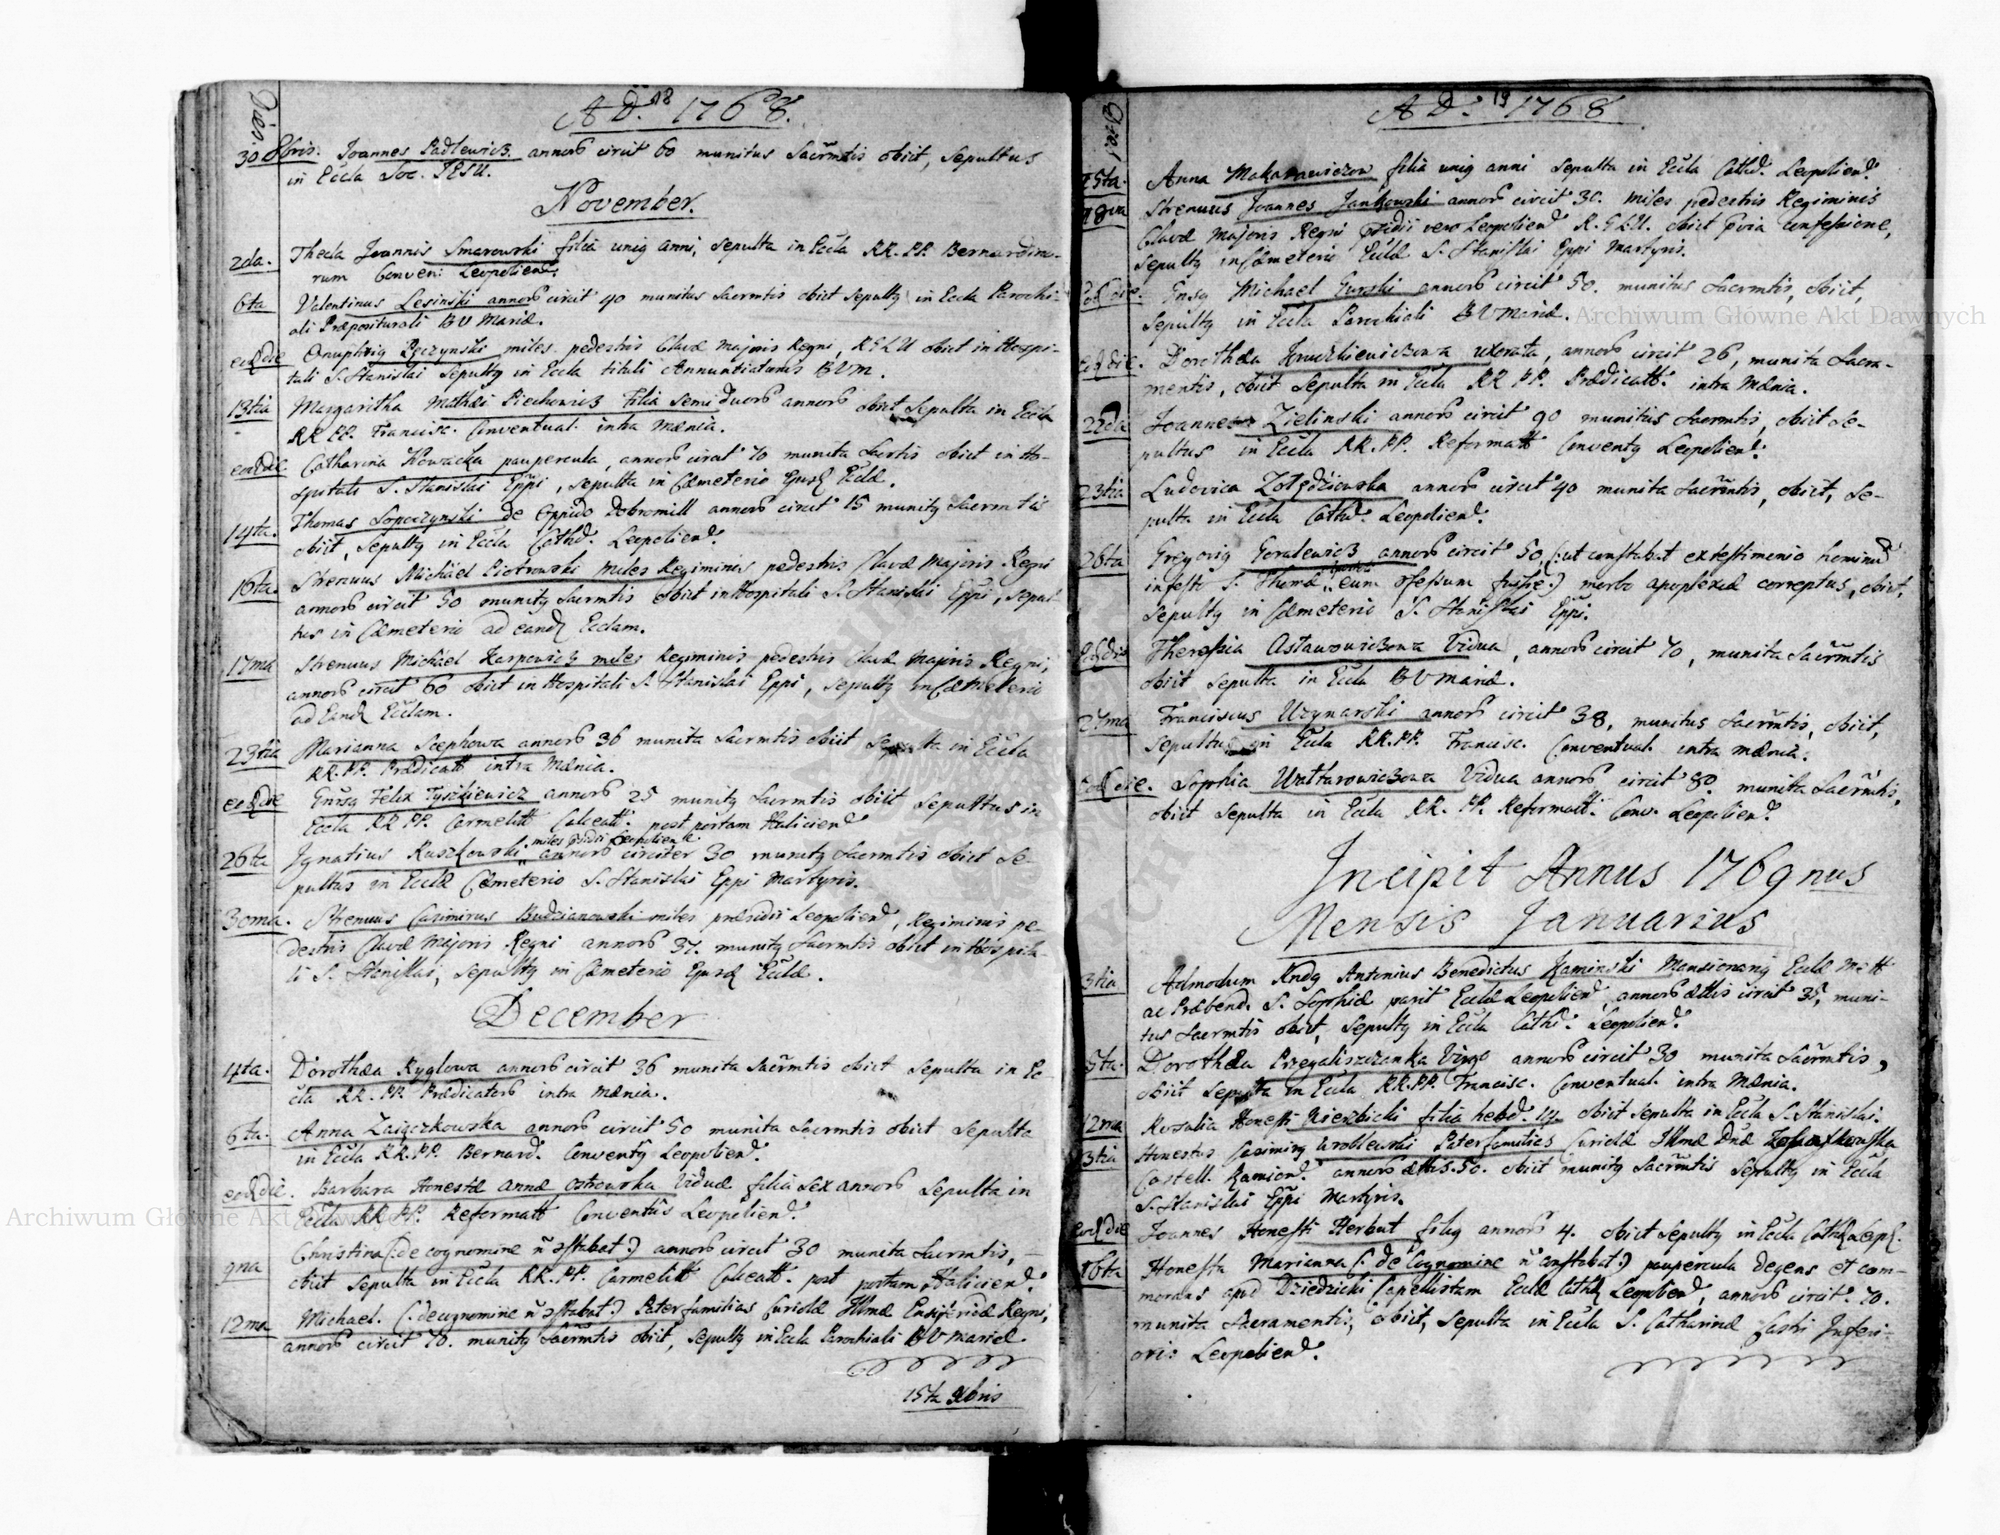 Dies.
A D. 1768.
18
30 8bris. Joannes Padlewicz annor circit 60 munitus Sacrmtis obiit, Sepultus
in Eccla Soc. JESU.
November.
2da. Thecla Joannis Smarowski filia unig anni, sepulta in Eccla RR. PP. Bernardino-
rum Conven: Leopolien:
6ta Valentinus Lesinski annor circit 40 munitus Sacrmtis obiit Sepultg in Eccla Parochi-
ali Præpositurali BV Mariæ.
eod die Onuphrig miles pedestris Clavæ Majoris Regni, obiit in Hospi-
tali S. Stanislai Sepultg in Eccla tituli Annuntiationis BVM.
13tia Margaritha Mathæi Piechowicz filia semi duor annor obiit Sepulta in Eccla
RR PP. Francisc. Conventual. intra Mænia.
eod die Catharina Nowacka paupercula, annor circit 70 munita Sacrtis obiit in Ho-
spitali S. Stanislai Eppi, sepulta in Cæmeterio Ejusd Ecclæ.
14ta. Thomas Sopoczynski de Oppido Dobromill annor circit 15 munitg Sacrmtis
obiit, Sepultg in Eccla Cathd. Leopolien.
16ta. Strenuus Michael Piotrowski miles Regiminis pedestris Clavæ Majoris Regni
annor circit 50 munitg Sacrmtis obiit in Hospitali S. Stanislai Eppi, Sepul-
tus in Cæmeterio ad eand Ecclam.
17ma Strenuus Michael Karpowicz miles Regiminis pedestris Clavæ Majoris Regni,
annor circit 60 obiit in Hospitali S. Stanislai Eppi, sepultg in Cæmeterio
ad Eand Ecclam.
23tia Marianna Szephowa annor 36 munita Sacrmtis obiit Sepulta in Eccla
RR. PP. Prædicatt intra Mænia.
eod die Gnsg Felix Tyszkiewicz annor 25 munitg Sacrmtis obiit Sepultus in
Eccla RR PP. Carmelitt Calceatt. post portam Halicien
miles Leopolien
26ta Ignatius Ruszkowski annor circiter 30 munitg Sacrmtis obiit Se-
pultus in Ecclæ Cæmeterio S. Stanislai Eppi Martyris.
30ma. Strenuus Casimirus Budzianowski miles præsidii Leopolien, Regiminis pe-
destris Clavæ Majoris Regni annor 37. munitg Sacrmtis obiit in Hospita-
li S. Stanislai, sepultg in Cæmeterio Ejusd Ecclæ.
December
4ta. Dorothæa Ryglowa annor circit 36 munita Sacrmtis obiit Sepulta in Ec-
cla RR. PP. Prædicator intra Mænia.
6ta. Anna Zaięczkowska annor circit 50 munita Sacrmtis obiit Sepulta
in Eccla RR. PP. Bernard. Conventg Leopolien.
eod die. Barbara Honestæ Annæ Ostrowska Viduæ filia Sex annor Sepulta in
Eccla RR PP. Reformatt Conventus Leopolien.
9na Christina (: de cognomine n 9stabat :) annor circit 30 munita Sacrmtis,
obiit Sepulta in Eccla RR. PP. Carmelitt Calceatt. post portam Halicien.
12ma Michael. (: de cognomine n 9stabat :) Paterfamilias Curiolæ Illmæ Ensiferidæ Regni,
annor circit 70. munitg Sacrmtis obiit, Sepultg in Eccla Parochiali BV Mariæ.
15ta Xbris
Dies.
A D. 1768
19
15ta. Anna Makarawiczow filia unig anni Sepulta in Eccla Cathd. Leopolien.
18va Strenuus Joannes Jankowski annor circit 30. miles pedestris Regiminis
Clavæ Majoris Regni vero Leopolien obiit Confessione,
Sepultg in Cæmeterio Ecclæ S. Stanislai Eppi Martyris.
Eod die. Gnsg Michael Gurski annor circit 50. munitus Sacrmtis, obiit,
Sepultg in Eccla Parochiali BV Mariæ.
eod die. Dorothæa uxorata, annor circit 26, munita Sacra-
mentis, obiit Sepulta in Eccla RR PP. Prædicatt. intra Mænia.
22da Joannes Zielinski annor circit 90 munitus Sacrmtis, obiit Se-
pultus in Eccla RR. PP. Reformatt Conventg Leopolien.
23tia Ludovica annor circit 40 munita Sacrmtis, obiit, Se-
pulta in Eccla Cathd. Leopolien.
26ta Gregorig Goralewicz annor circit 50, (: ut constabat ex testimonio hominu
in festo S. Thomæ eum fuisse :) morbo apoplexiæ correptus, obiit,
Sepultg in Cæmeterio S. Stanislai Eppi.
Eod die Theressia Ostawowiczowa Vidua, annor circit 70, munita Sacrmtis
obiit Sepulta in Eccla BV Mariæ.
27ma Franciscus Uzynarski annor circit 38, munitus Sacrmtis, obiit,
Sepultus in Eccla RR. PP. Francisc. Conventual. intra mænia.
Eod die. Sophia Waltarowiczowa Vidua annor circit 80 munita Sacrmtis,
obiit Sepulta in Eccla RR. PP. Reformatt. Conv. Leopolien.
Incipit Annus 1769nus
Mensis Januarius
3tia Admodum Rndg Antonius Benedictus Kaminski Mansionarig Ecclæ Mett
ac Præbend. S. Sophiæ Ecclæ Leopolien, annor ættis circit 35, muni-
tus Sacrmtis obiit, Sepultg in Eccla Cathd. Leopolien.
5ta. Dorothæa Virgo annor circit 30 munita Sacrmtis,
obiit Sepulta in Eccla RR. PP. Francisc. Conventual. intra Mænia.
12ma Rosalia Honesti Wierzbicki filia hebd. 14. obiit Sepulta in Eccla S. Stanislai.
13tia Honestus Casimirg Wroblewski Paterfamilias Curiolæ Illmæ Dnæ
Castell. Kamien. annor ættis. 50. obiit munitg Sacrmtis Sepultg in Eccla
S. Stanislai Eppi Martyris.
eod die Joannes Honesti Herbut filig annor 4. obiit Sepultg in Eccla Cathd Leopl.
16ta Honesta Marianna (: de Cognomine n constabat :) paupercula degens et com-
morans apud Dziedzicki Capellistam Ecclæ Cathd Leopolien, annor circit. 70.
munita Sacramentis, obiit, Sepulta in Eccla S. Catharinæ Castri Inferi-
oris Leopolien.
Archiwum Główne Akt Dawnych
Archiwum Główne Akt Dawnych